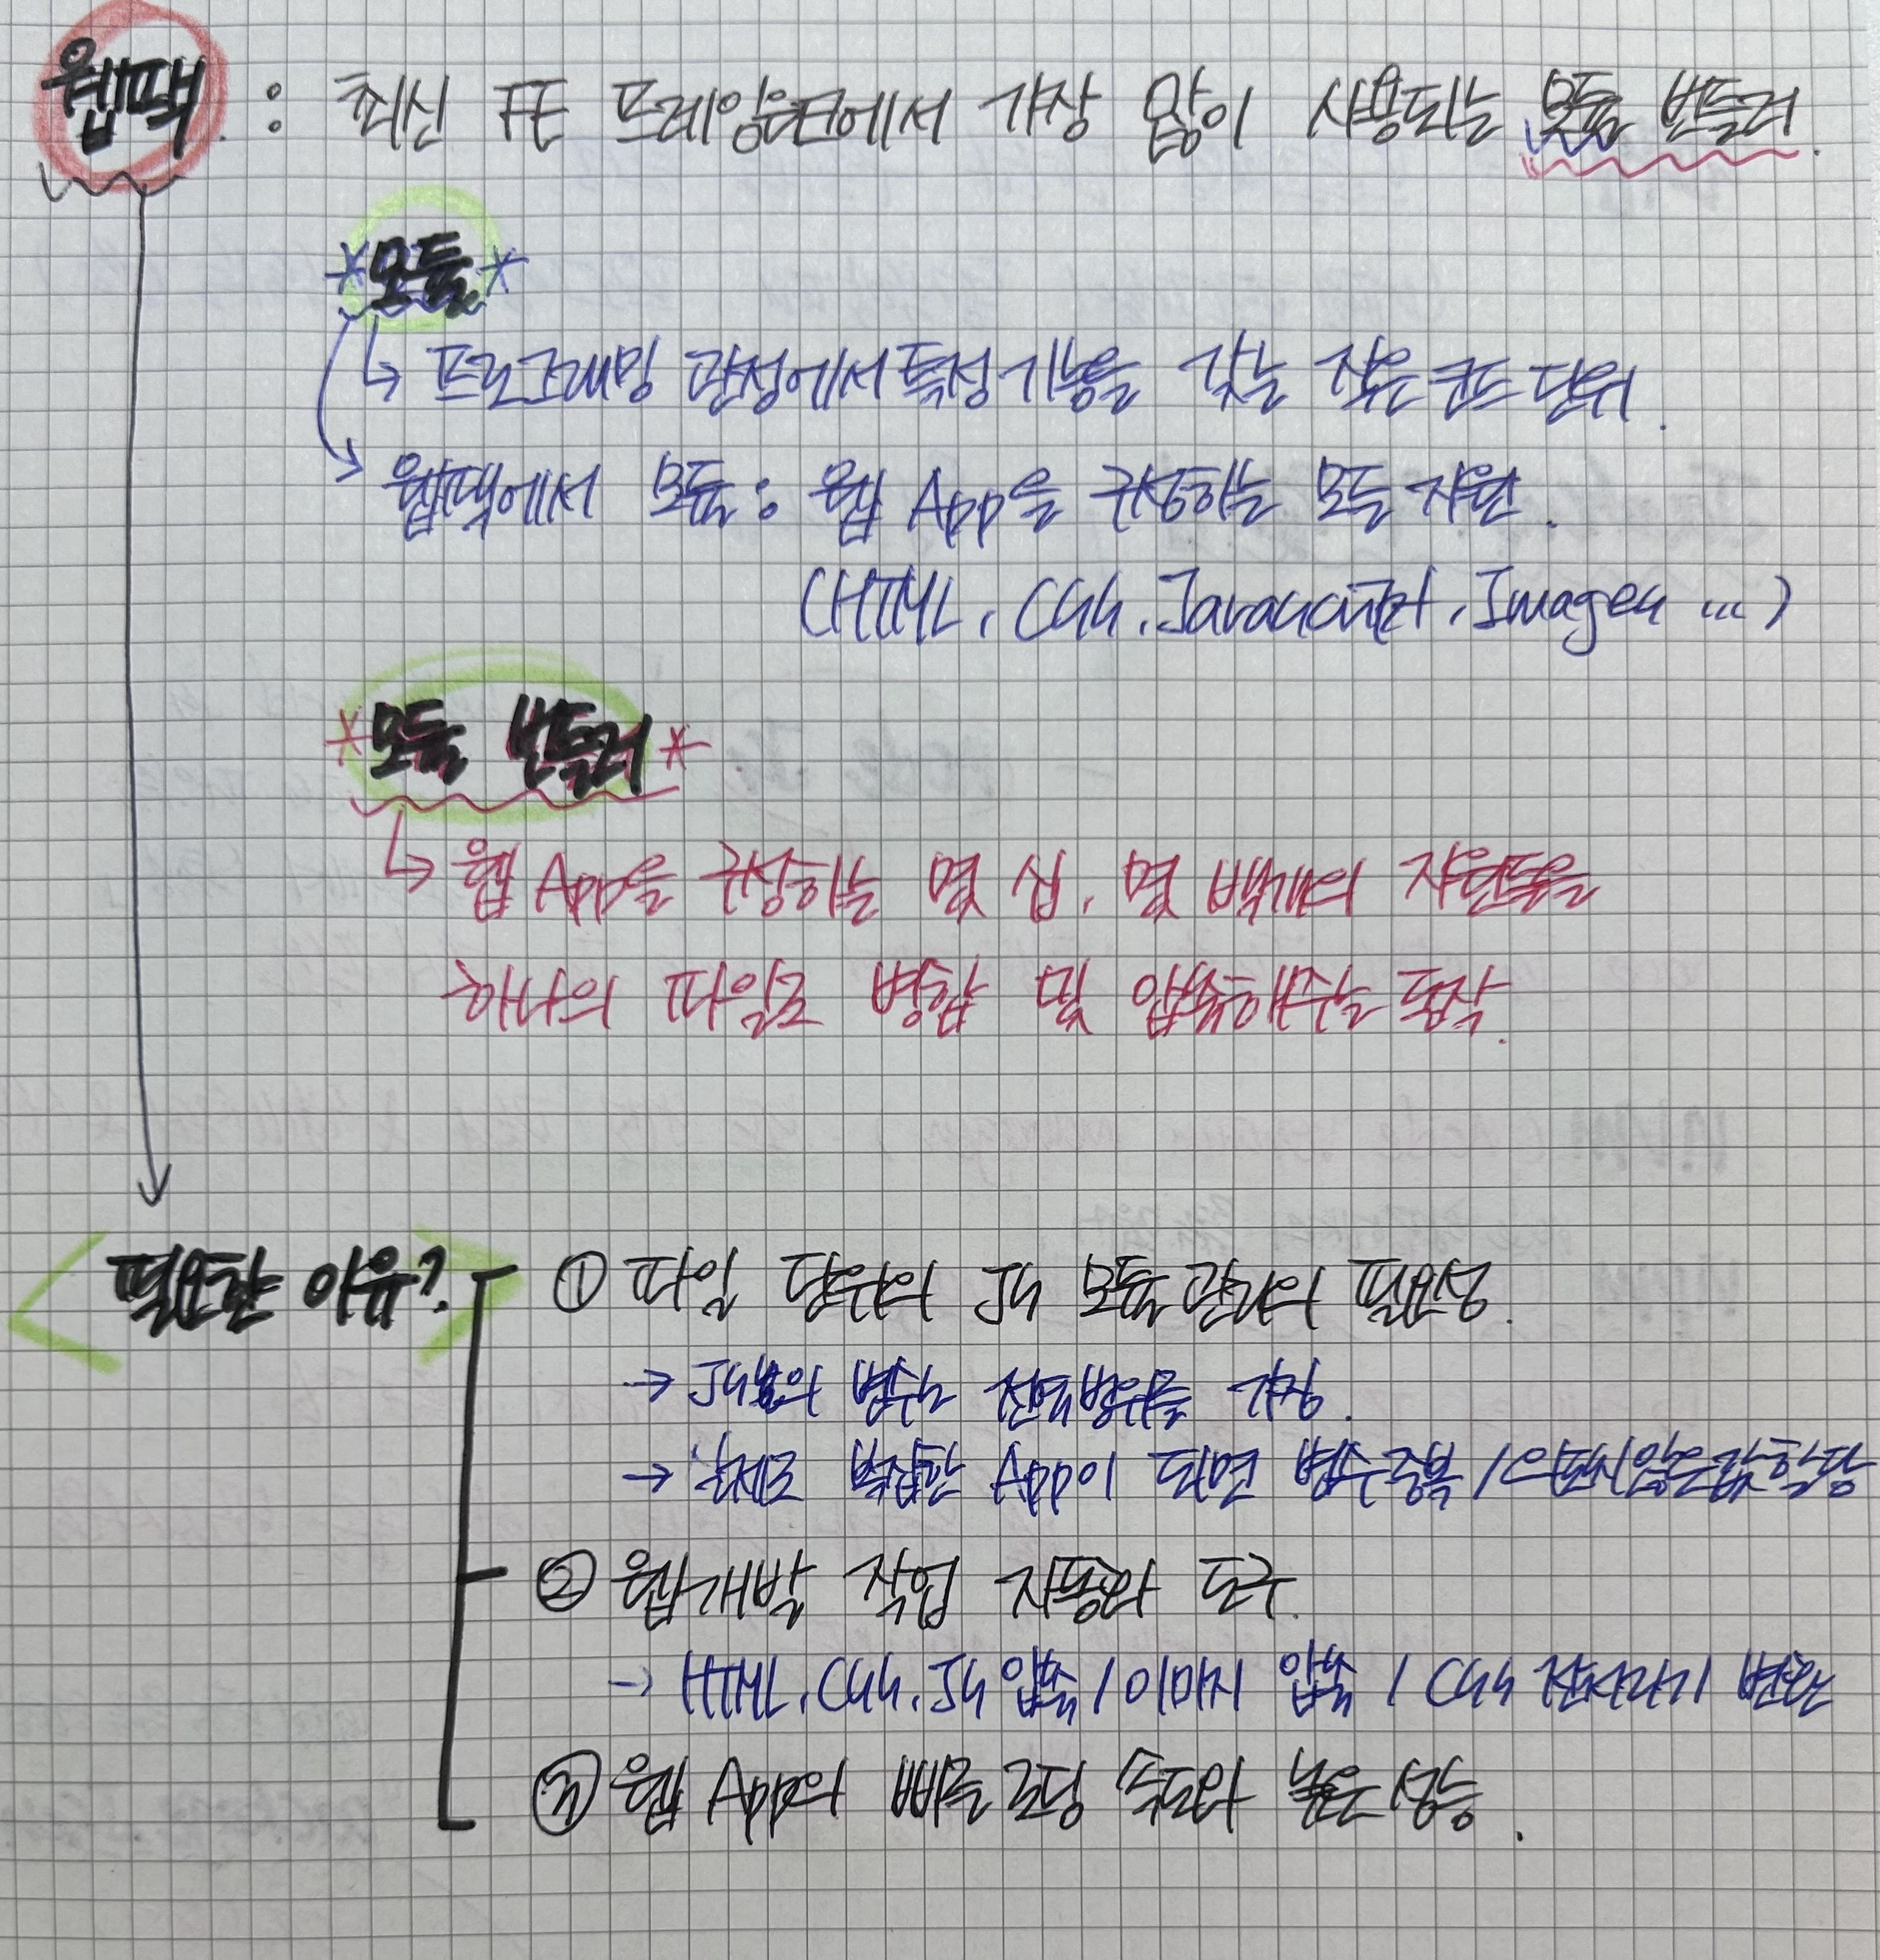 웹팩 : 최신 FE 프레임워크에서 가장 많이 사용되는 모듈 번들러.
*모듈*
↳ 프로그래밍 관점에서 특정 기능을 갖는 작은 코드 단위.
웹팩에서 모듈 : 웹 App을 구성하는 모든 자원.
(HTML, Css, Javascript, Images ...)
*모듈 번들러*
↳ 웹 App을 구성하는 몇 십, 몇 백개의 자원들을
하나의 파일로 병합 및 압축해주는 동작.
<필요한 이유?>
① 파일 단위의 Js 모듈 관리의 필요성.
→ Js의 변수는 전역범위를 가짐.
→ 실제로 복잡한 App이 되면 변수 중복 / 의도치 않은 값 할당
② 웹 개발 작업 자동화 도구.
→ HTML, Css, Js 압축 / 이미지 압축 / Css 전처리기 변환
③ 웹 App의 빠른 로딩 속도와 높은 성능.